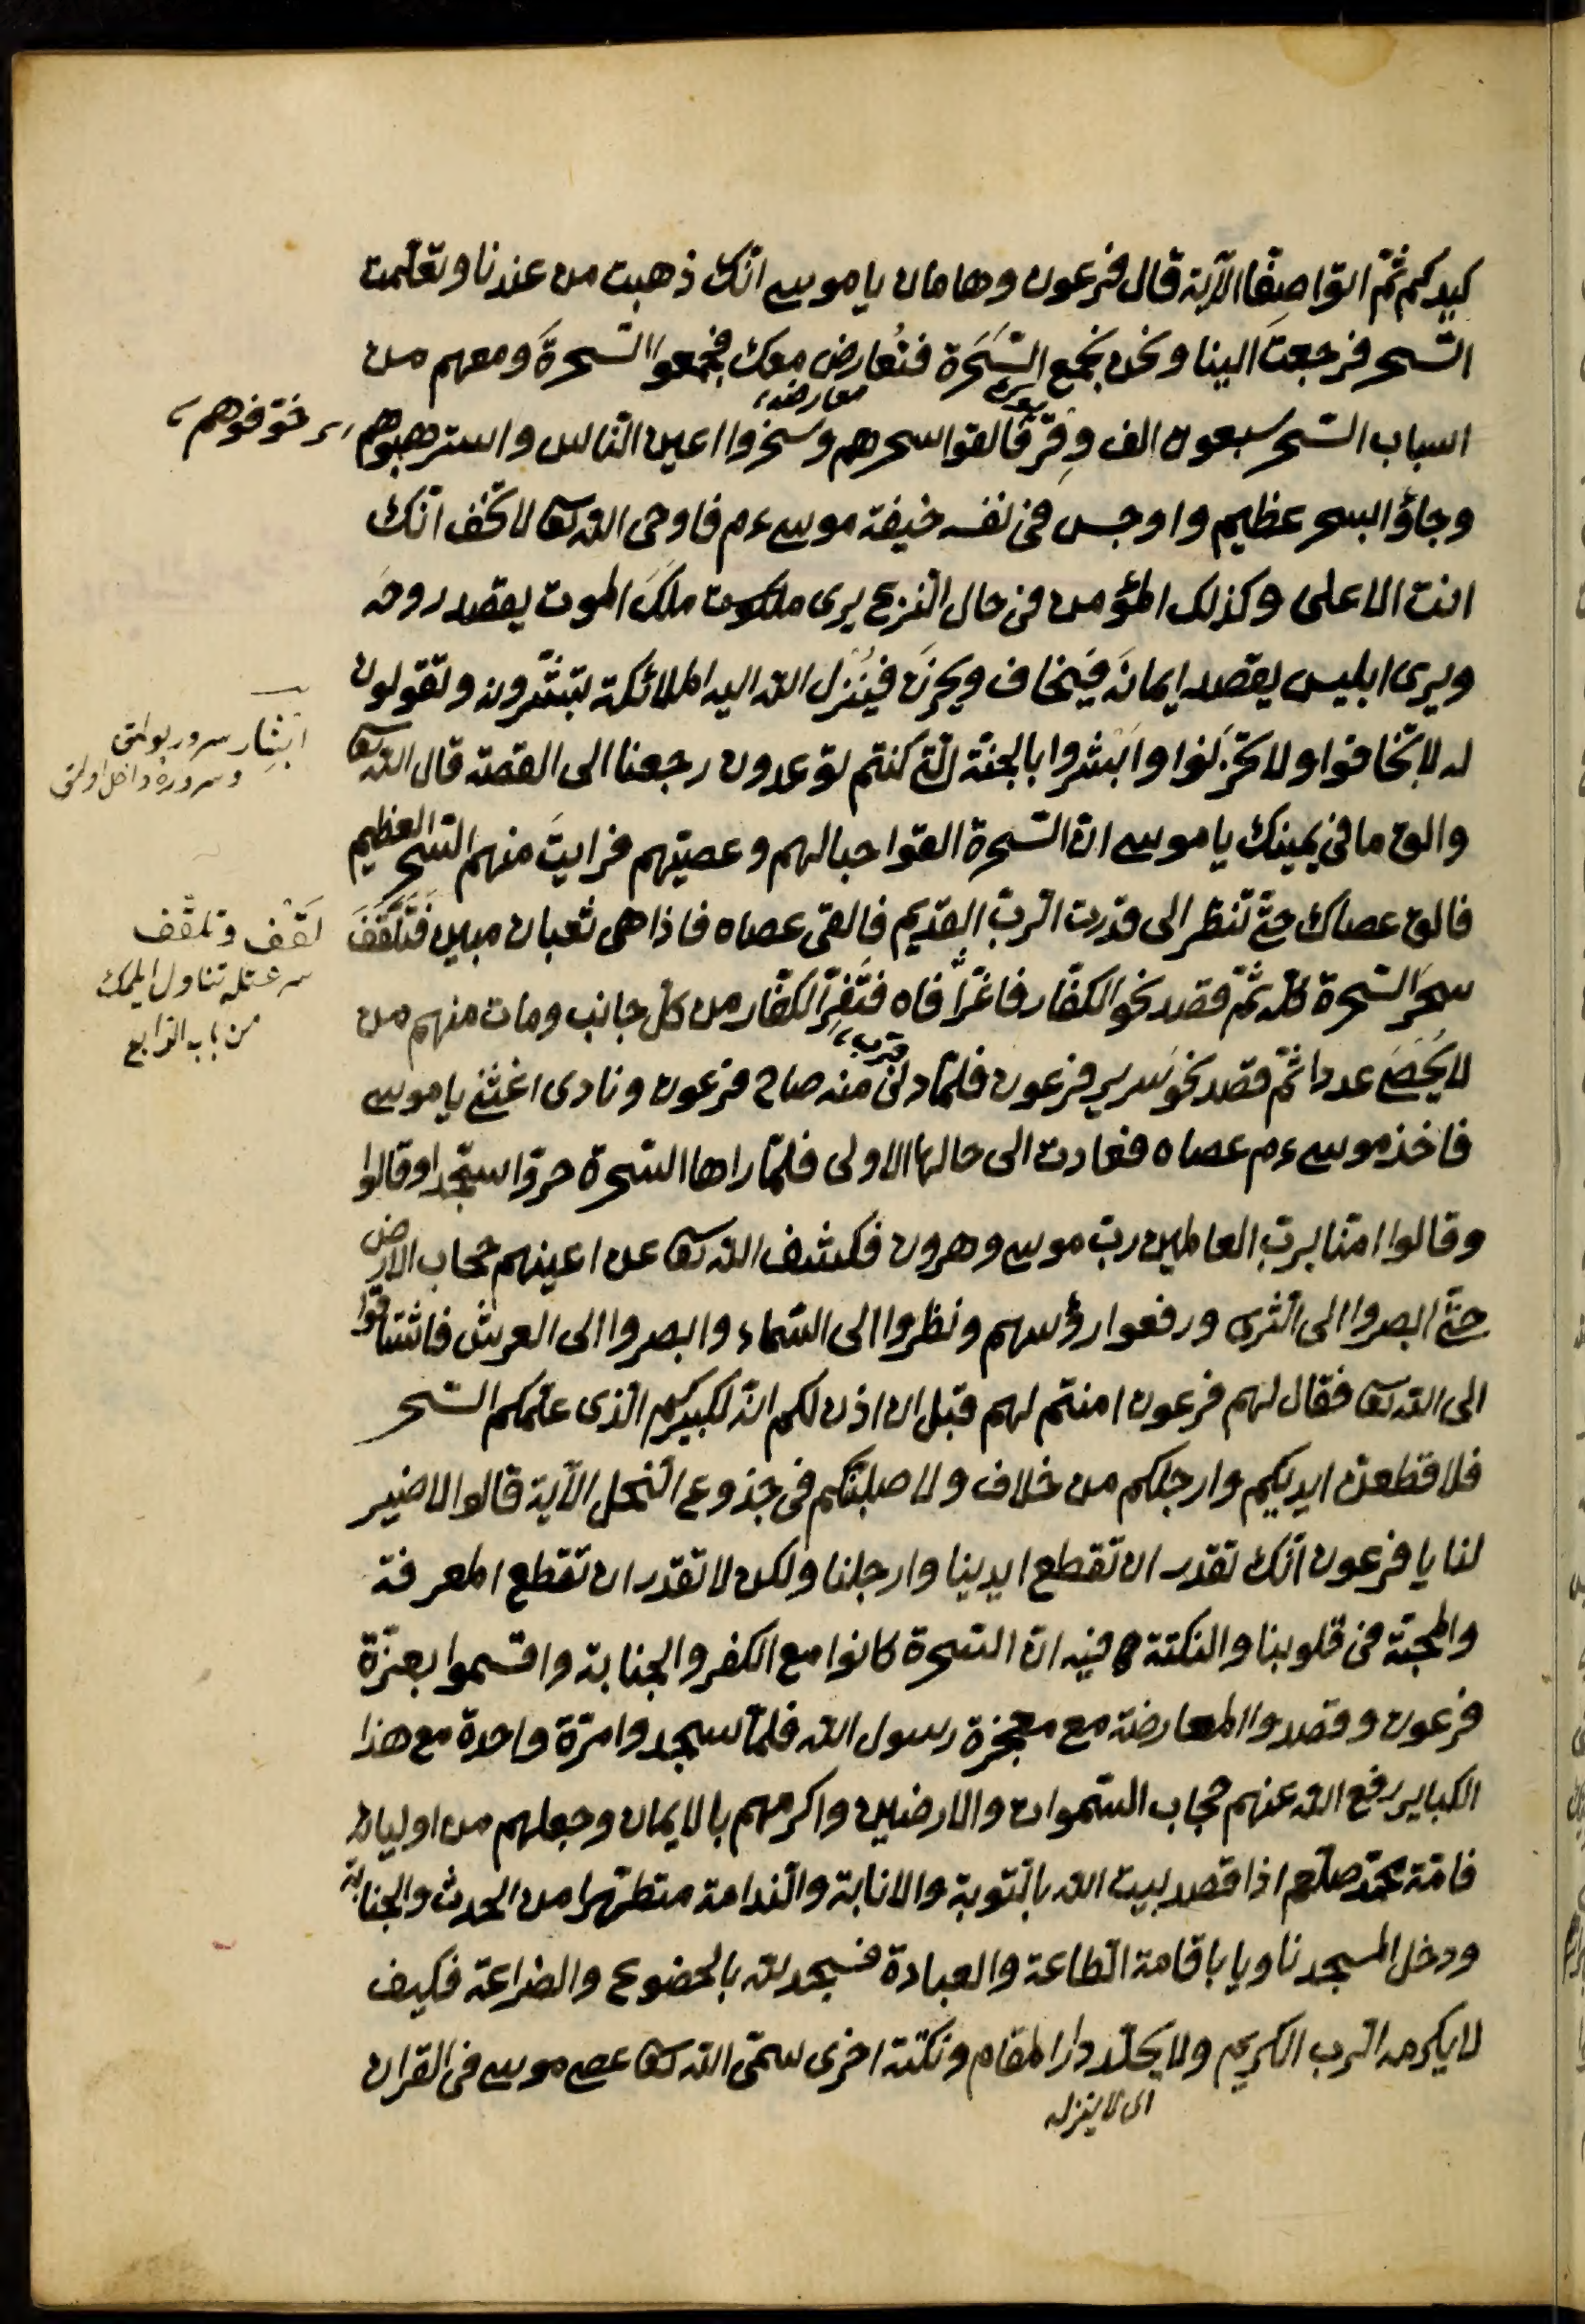 كيدكم ثمّ ائتوا صفّا الآية قال فرعون وهامان يا موسى انّك ذهبت من عندنا وتعلّمت
السّحر فرجعت الينا ونحن نجمع السَّحَرة فنُعارض معك فجمعوا السّحرةَ ومعهم من
معارضه
اسباب السّحر سبعون الف وِقر فالقوا سحرهم وسخروا اعين النّاس واسترهبوهم
خوّفوهم
وجاؤا بسحر عظيم واوجس فى نفسه خيفة موسى ءم فاوحى الله تعا لا تخف انّك
انت الاعلى وكذلك المؤمن فى حال النّزع يرى ملكوت ملَكَ الموت يقصد روحَه
ويرى ابليس يقصد ايمانَه فيَخاف ويحزن فينُزل الله اليه الملائكة تبشّرونه وتقولون
له لا تخافوا ولا تحزَنوا واَبشروا بالجنّة الّتى كنتم توعدون رجعنا الى القصّة قال الله تعا
ابشار سرور بولمق
وسروره داخل اولمق
والق ما فى يمينك يا موسى انّ السّحرة القوا حبالهم وعصيّهم فرايتَ منهم السّحر العظيم
فالق عصاك حتّى تنظر الى قدرت الربّ القديم فالقى عصاه فاذا هى ثعبان مبين فَتَلَقَّفَ
لَقْف وتلقّف
سرعتله تناول ايلمك
من باب الرّابع
سحرَ السّحرة كلّه ثمّ قصد نحو الكفّار فاغرًّا فاه فتَفِرّ الكفّار من كلّ جانب ومات منهم من
لا يُحصَى عددا ثمّ قصد نحوَ سرير فرعون فلمّا دنى منه صاح فرعون ونادى اغثنى يا موسى
قرب
فاخذ موسى ءم عصاه فعادت الى حالها الاولى فلمّا راها السّحرة خرّوا سجّدا وقالوا
وقالوا امنّا بربّ العالمين ربّ موسى وهرون فكشف الله تعا عن اعينهم حجاب الارض
حتّى ابصروا الى الثّرى ورفعوا رؤسهم ونظروا الى السّماء وابصروا الى العرش فاشتاقوا
الى الله تعا فقال لهم فرعون امنتم لهم قبل ان اذن لكم انّه لكبيركم الّذى علّمكم السّحر
فلاقطعنّ ايديكم وارجلكم من خلاف ولاصلبنّكم فى جذوع النّخل الآية قالوا لا ضير
لنا يا فرعون انّك تقدر ان تقطع ايدينا وارجلنا ولكن لا تقدر ان تقطع المعرفة
والمحبّة فى قلوبنا والنكتة فيه انّ السّحرة كانوا مع الكفر والجنابة واقسموا بعزّة
فرعون وقصدوا المعارضة مع معجزة رسول الله فلمّا سجدوا مرّة واحدة مع هذا
الكباير رفع الله عنهم حجاب السّموات والارضين واكرمهم بالايمان وجعلهم من اوليائه
فامّة محمّد صلّعم اذا قصد بيت الله بالتّوبة والانابة والنّدامة متطهّرا من الحدث والجنابة
ودخل المسجد ناويا باقامة الطاعة والعبادة فسجد لله بالخضوع والضراعة فكيف
لا يكرمه الربّ الكريم ولا يحلّه دار المقام ونكتة اخرى سمّى الله تعا عصى موسى فى القران
اى لا ينزله